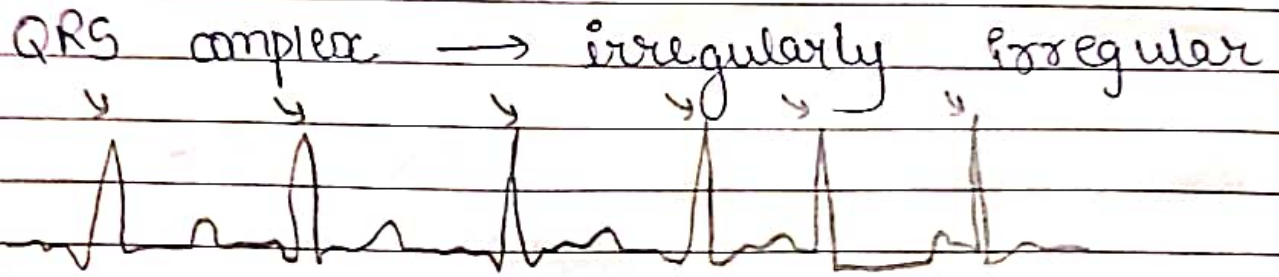 QRS complex → irregularly irregular